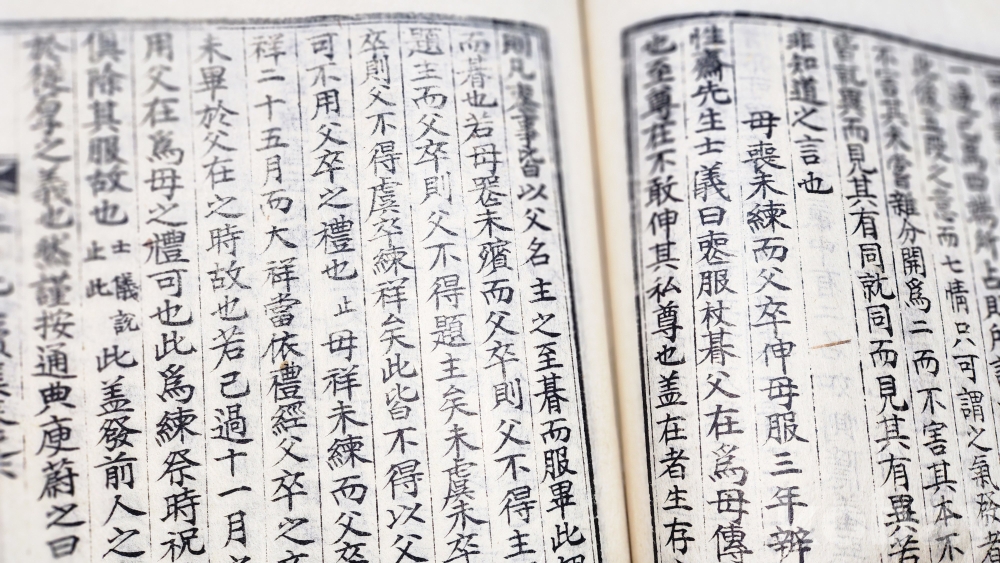 一邊已爲四端所占則所
之意而七情只可謂之氣發者
雜分開爲二而不害其本不
異而見其有同就同而見其有異若
非知道之言也
母喪未練而父卒伸母服三年辨
性齋先生士義曰喪服杖朞父在爲母傳
也至尊在不敢伸其私尊也盖在者生存
則凡喪事皆以父名主之至朞而服畢此
而朞也若母喪未殯而父卒則父不得主
題主而父卒則父不得題主矣未虞未卒
卒則父不得虞卒練祥矣此皆不得以父
可不用父卒之禮也止 母祥未練而父卒
祥二十五月而大祥當依禮經父卒之
未畢於父在之時故也若已過十一月
用父在爲母之禮可也此爲練祭時祝
俱除其服故也 士儀說止此 此盖發前人之
之義也然謹按通典庾蔚之曰